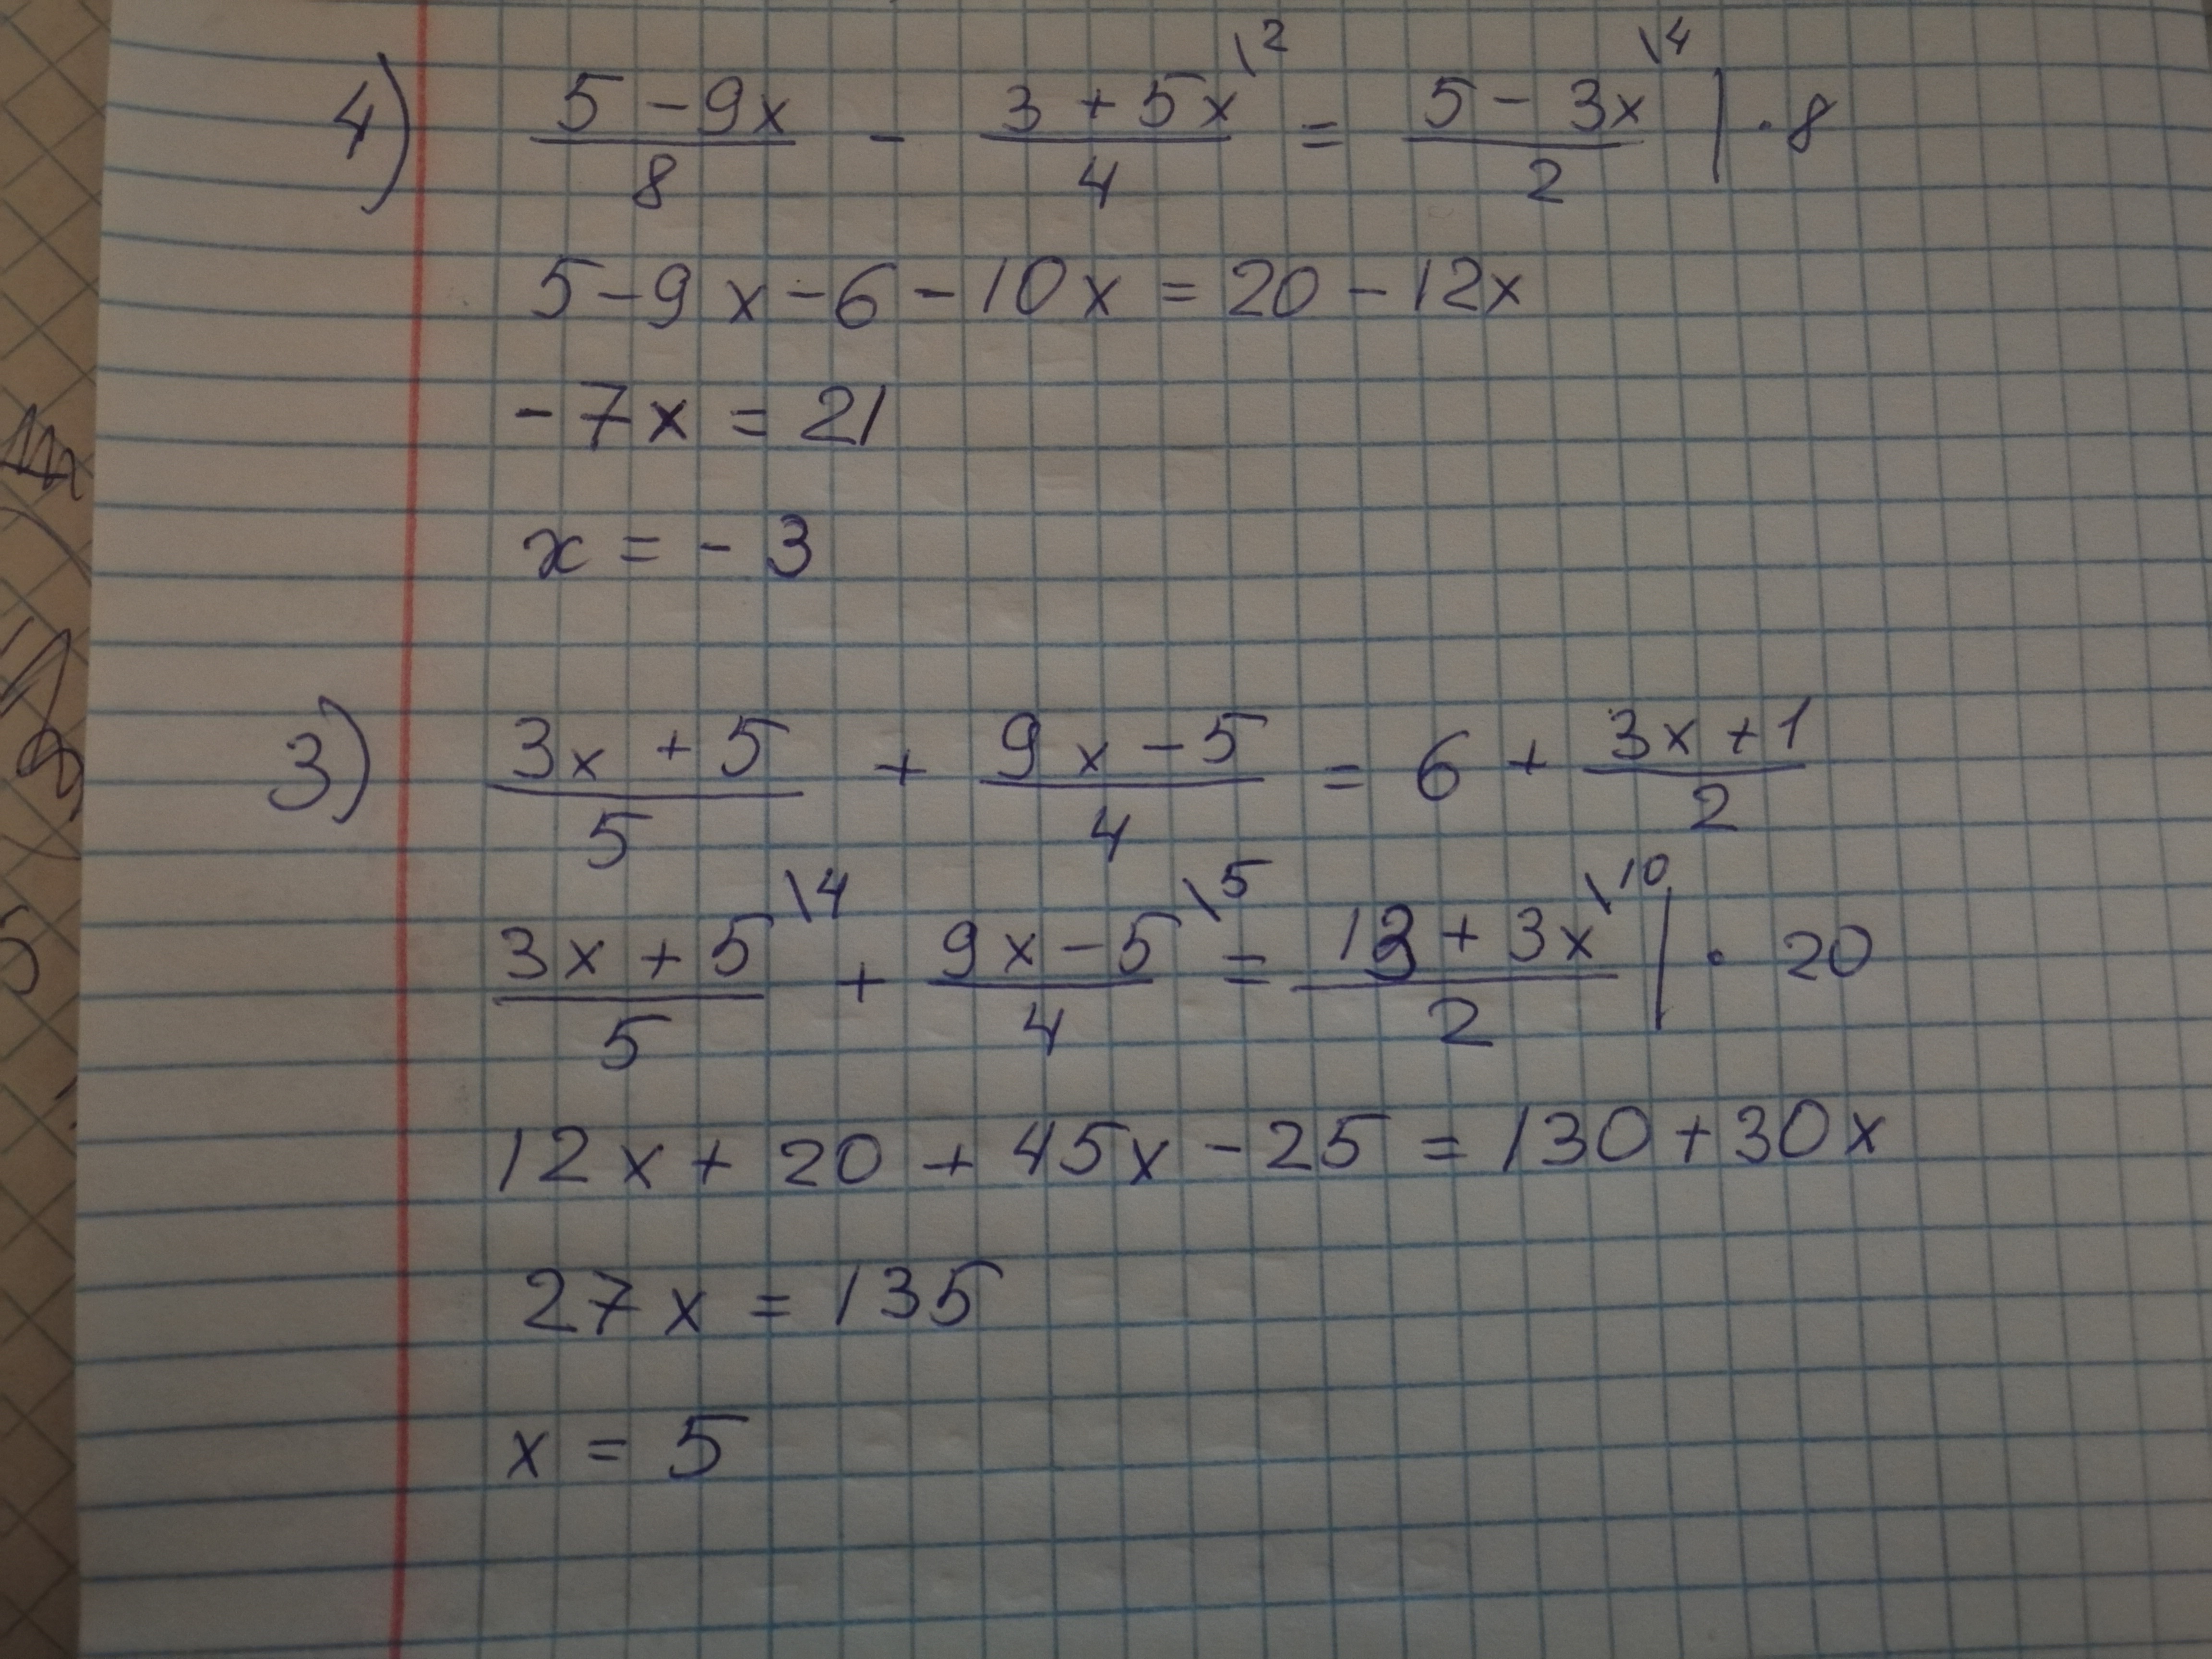 4) (5 - 9x)/8 - (3 + 5x)/4 \2 = (5 - 3x)/2 \4 | · 8
5 - 9x - 6 - 10x = 20 - 12x
- 7x = 21
x = - 3
3) (3x + 5)/5 + (9x - 5)/4 = 6 + (3x + 1)/2
(3x + 5)/5 \4 + (9x - 5)/4 \5 = (13 + 3x)/2 \10 | · 20
12x + 20 + 45x - 25 = 130 + 30x
27x = 135
x = 5